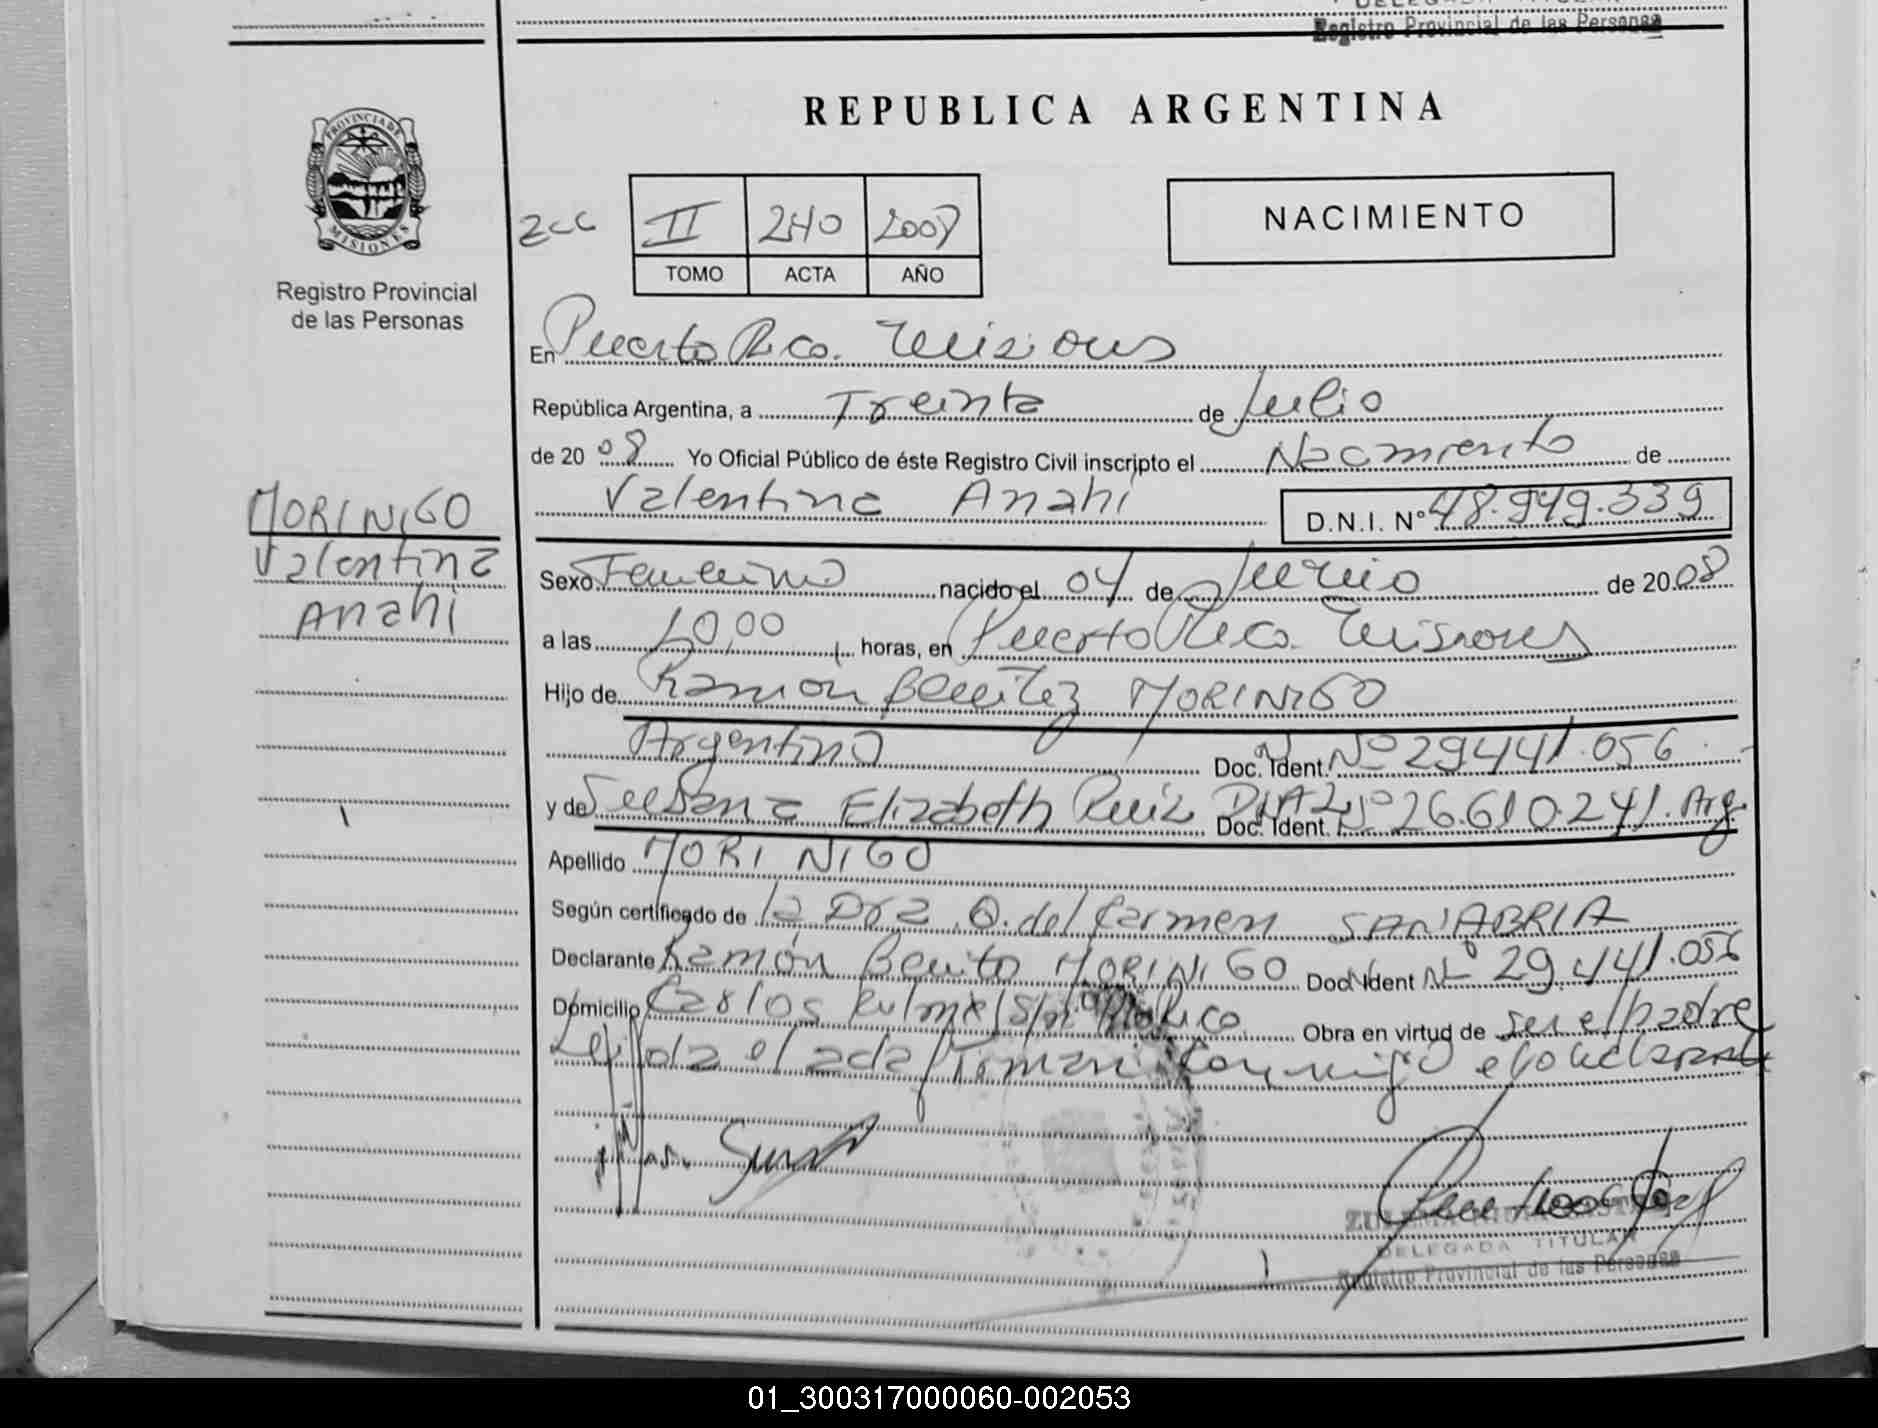 DELEGADA TITULAR
Registro Provincial de las Personas
REPUBLICA ARGENTINA
PROVINCIA DE
MISIONES
Registro Provincial
de las Personas
II 240 2008
TOMO ACTA AÑO
NACIMIENTO
En Puerto Rico. Misiones
República Argentina, a Treinta de Julio
de 20 08 Yo Oficial Público de éste Registro Civil inscripto el Nacimiento de
Valentina Anahi D.N.I. Nº 48.949.339
MORINIGO
Valentina
Anahi
Sexo Femenino nacido el 04 de Junio de 20 08
a las 10,00 horas, en Puerto Rico. Misiones
Hijo de Ramon Benitez MORINIGO
Argentino Doc. Ident. Nº 29441.056
y de Susana Elizabeth Ruiz DIAZ Doc. Ident. Nº 26.610.241. Arg.
Apellido MORINIGO
Según certificado de la Dra. Q. del Carmen SANABRIA
Declarante Ramón Benito MORINIGO Doc. Ident Nº 29.441.056
Domicilio Carlos s/nº Pto Rico Obra en virtud de ser el padre
Leída el acta firman conmigo el declarante
DELEGADA TITULAR
Registro Provincial de las Personas
01_300317000060-002053